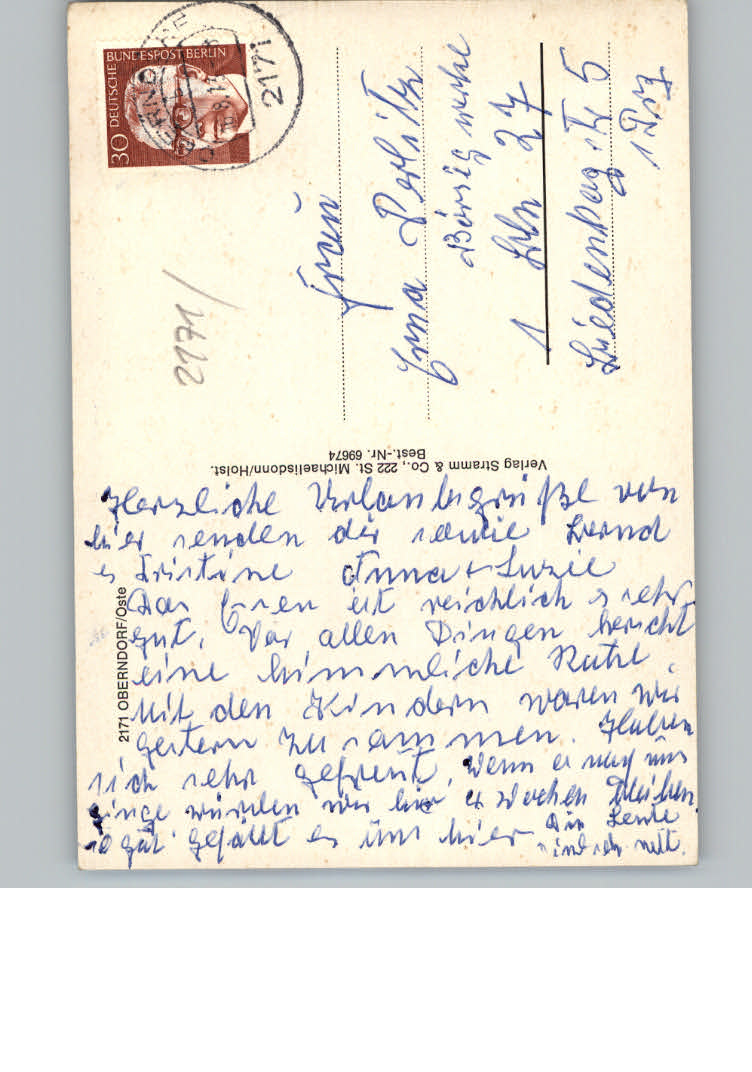 DEUTSCHE BUNDESPOST BERLIN
30
2171
2171/
Frau
Erna Perlitz
Borsigwerke
1 Bln 27
Friedenhag Str 5
Verlag Stramm & Co., 222 St. Michaelisdonn/Holst.
Best.-Nr. 69674
2171 OBERNDORF/Oste
Herzliche Urlaubsgrüße von
hier senden dir
Anna + Luzie
Das Essen ist reichlich u sehr
gut. Vor allen Dingen herscht
eine himmliche Ruhe.
Mit den Kindern waren wir
gestern zusammen. Haben
sich sehr gefreut. Wenn es nach uns
ginge würden wir hier Wochen bleiben
so gut gefällt es uns hier Die Leute
sind sehr nett.